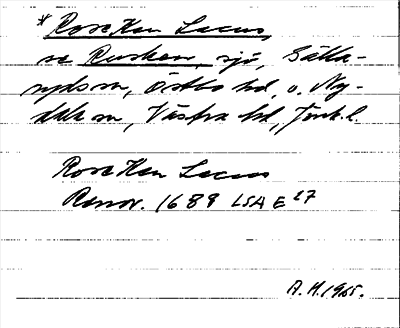 *RoseKen Lacus,
se Rusken, sjö, Gälla-
ryds sn, Östbo hd, o. Ny-
dala sn, Västra hd, Jönk. l.
RoseKen Lacus
Ranov. 1689 LSA E 27
A.H. 1965.